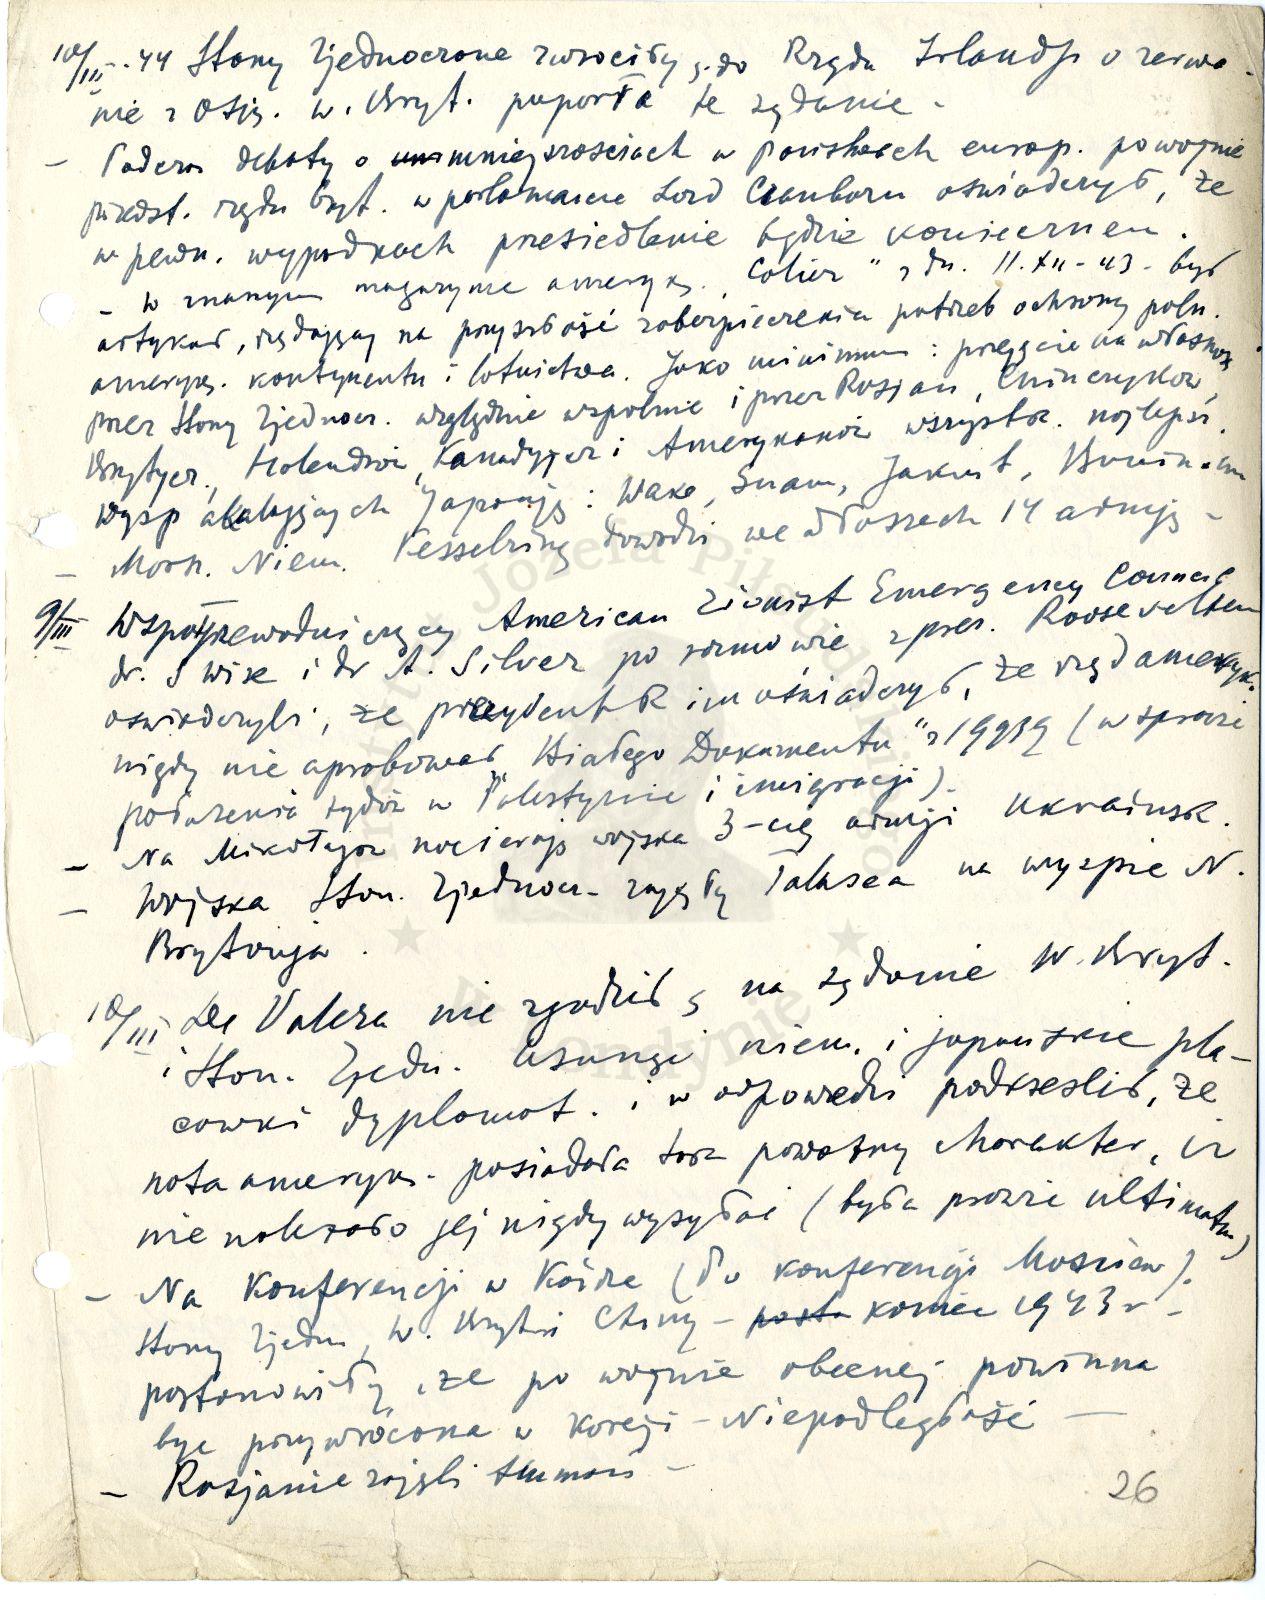 10/III.-44 Stany Zjednoczone zwróciły s. do Rządu Irlandji o zerwa-
nie z Osią. W. Bryt. poparła te żądanie -
- Podczas debaty o mniejszościach w państwach europ. powojnie
przedst. rządu bryt. w parlamencie Lord Cranborn oświadczył, że
w pewn. wypadkach przesiedlenie będzie koniecznem.
- W znanym magazynie ameryk. "Colier" z dn. 11.XII-43- był
artykuł, żądający na przyszłość zabezpieczenia potrzeb ochrony półn.
ameryk. kontynentu i lotnictwa. Jako minimum: przejęcie na własność
przez Stany Zjednocz. względnie wspólnie i przez Rosjan, Chińczyków,
Brytyjcz., Holendrów, Kanadyjcz. i Amerykanów wszystk. najlepsz.
wysp okalających Japonję: Wake, Guam, Jaluit, Bonin
- Marsz. Niem. Kesselring dowodzi we Włoszech 14 armją -
9/III Współprzewodniczący American Zionist Emergency Council
dr. S Wise i dr A. Silver po rozmowie z prez. Rooseveltem
oświadczyli, że prezydent R im oświadczył, że rząd ameryk.
nigdy nie aprobował "Białego Dokumentu" z 1939 (w sprawie
położenia żydów w Palestynie i imigracji).
- Na Mikołajów nacierają wojska 3-ciej armji Ukraińsk.
- Wojska Stan. Zjednocz- zajęły Talasea na wyspie N.
Brytanja.
10/III De Valera nie zgodził s. na żądanie W. Bryt.
i Stan. Zjedn. usunąć niem. i japońskie pla-
cówki dyplomat. i w odpowiedzi podkreślił, że
nota ameryk- posiadała tak poważny charakter, iż
nie należało jej nigdy wysyłać (była prawie ultimatum)
- Na Konferencji w Kairze (po konferencji Moskiew).
Stany Zjedn, W. Bryt i Chiny - koniec 1943 r -
postanowiły, że po wojnie obecnej powinna
być przywrócona w Koreji - Niepodległość -
- Rosjanie zajęli Humań -
26